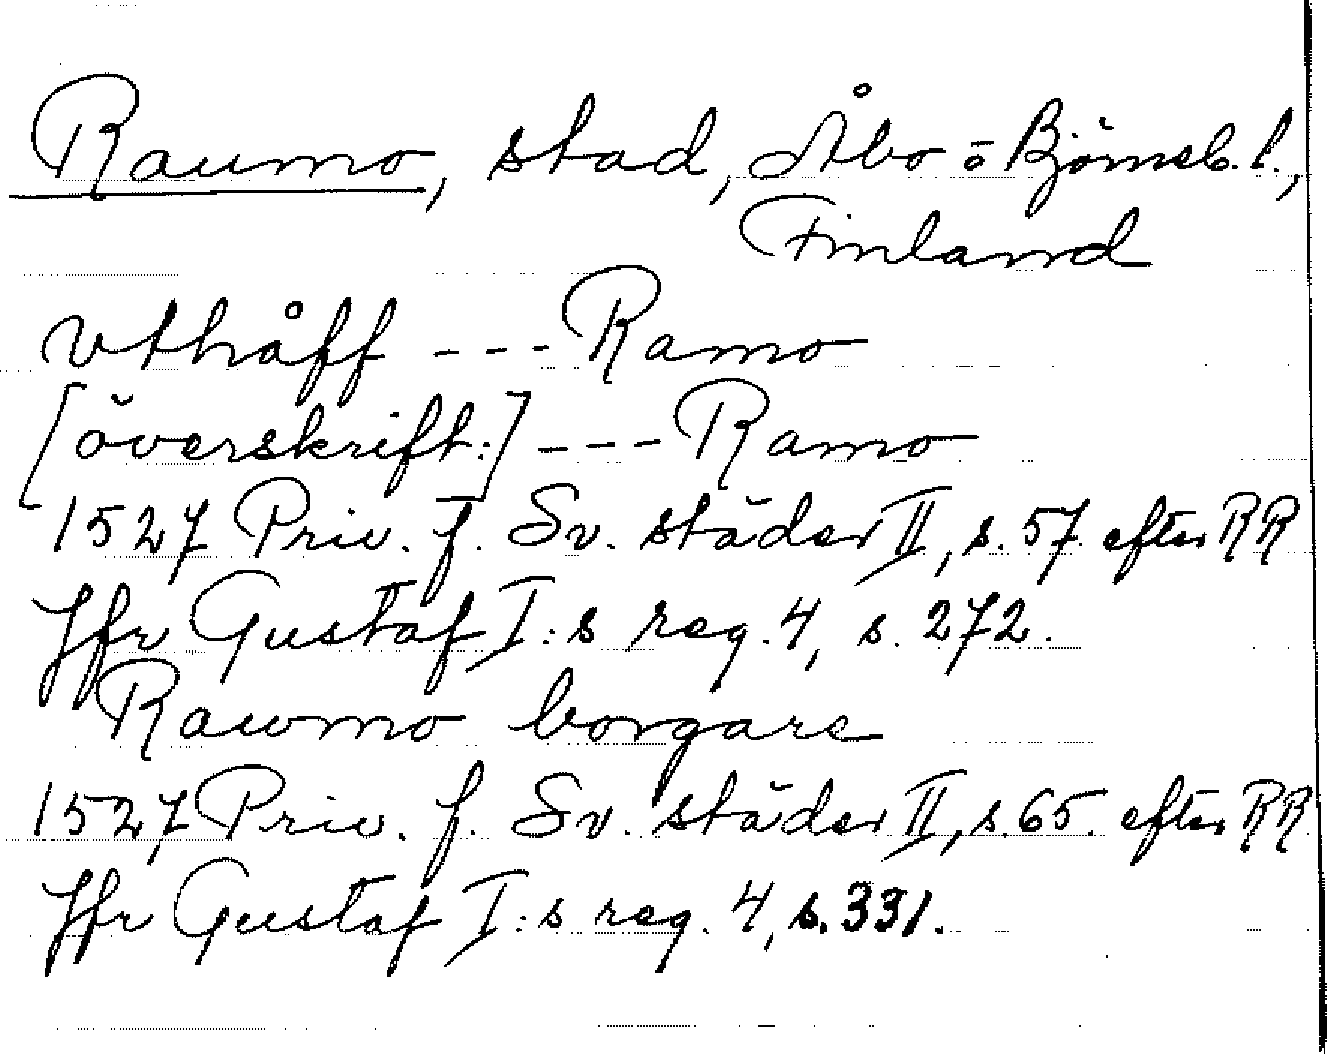 Raumo, stad, Åbo o Björneb. l.,
Finland
vthåff --- Ramo
[överskrift:] --- Ramo
1527 Priv. f. Sv. städer II, s. 57 efter RR
Jfr Gustaf I:s reg. 4, s. 272.
Rawmo borgare
1527 Priv. f. Sv. städer II, s. 65. efter RR
Jfr Gustaf I:s reg. 4, s. 331.